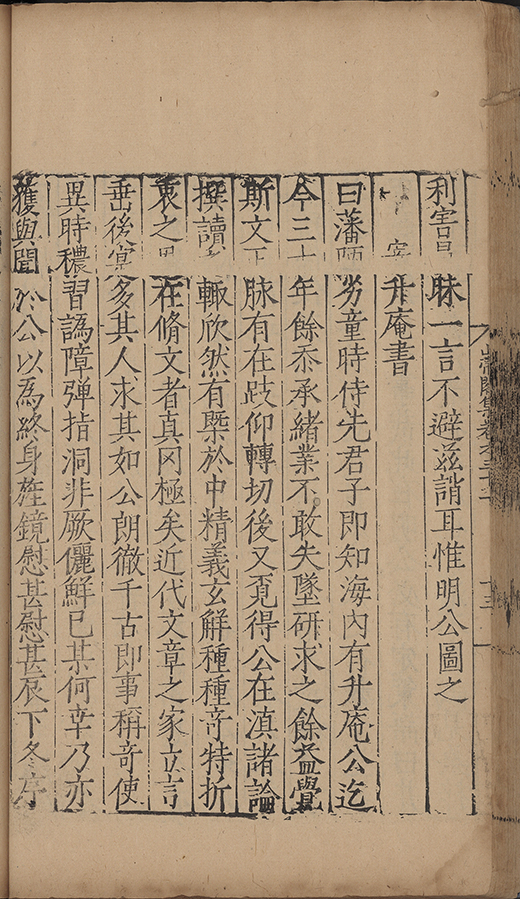 利害昧一言不避滋誚耳惟明公圖之
升庵書
曰藩陋劣童時侍先君子即知海內有升庵公迄
今三十年餘忝承緒業不敢失墜研求之餘益覺
斯文正脉有在跂仰轉切後又覓得公在滇諸論
撰讀輒欣然有槩於中精義玄解種種奇特折
衷之在脩文者真罔極矣近代文章之家立言
垂後寔多其人求其如公朗徹千古即事稱奇使
異時穠習譌障弹指洞非厥儷鮮已某何幸乃亦
獲與聞於公以為終身旌鏡慰甚慰甚辰下冬序